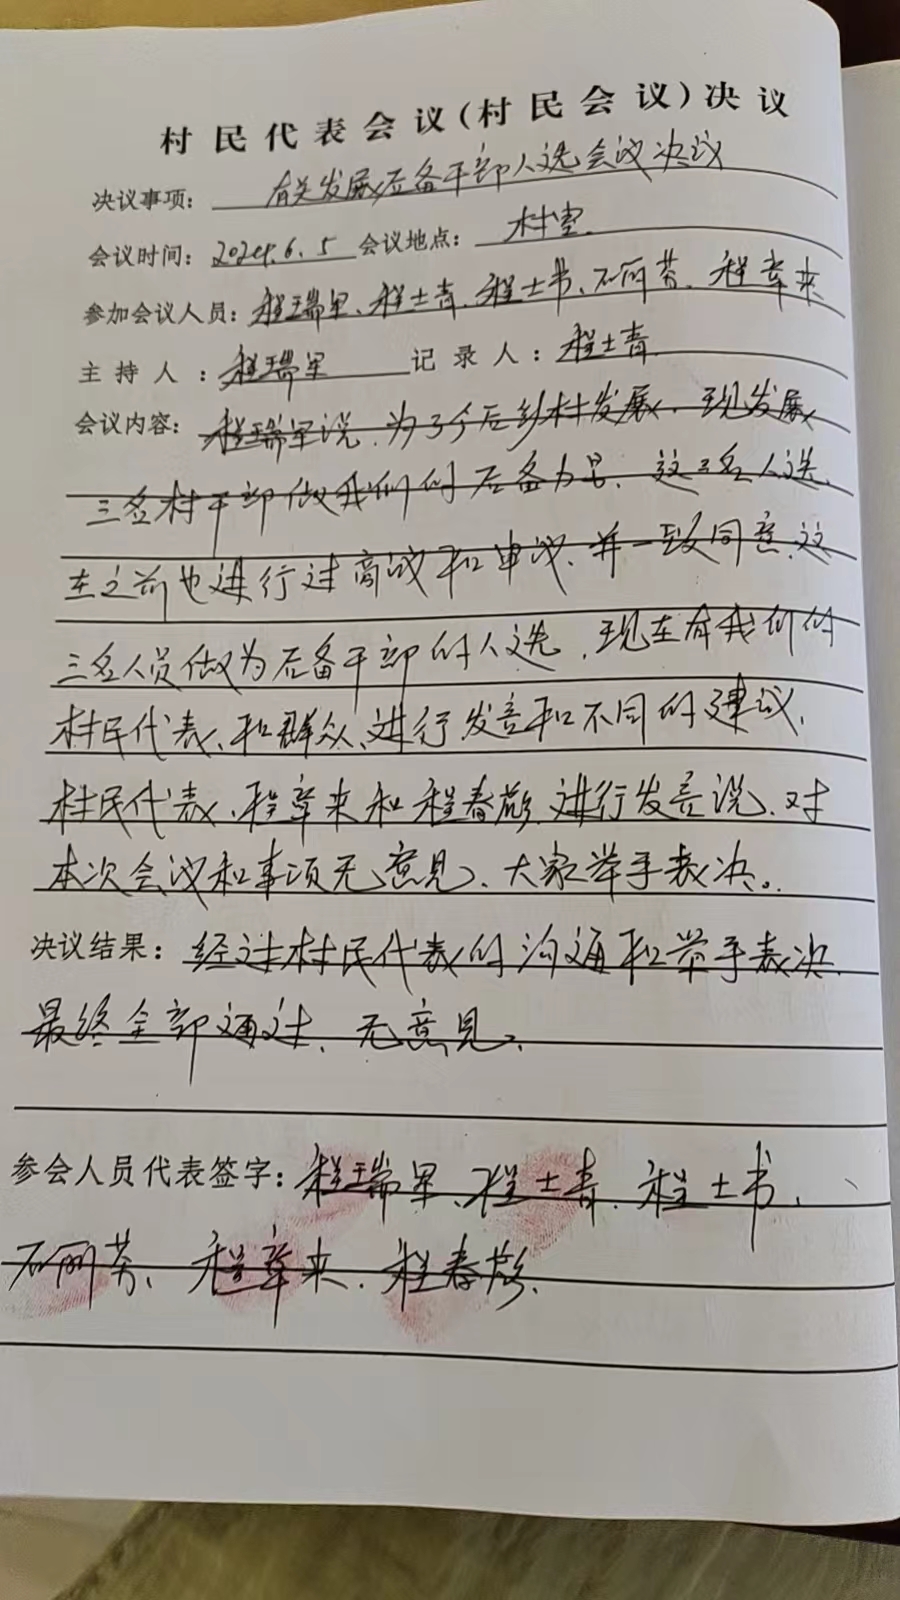 村民代表会议(村民会议)决议
决议事项: 有关发展后备干部人选会议决议
会议时间: 2024.6.5 会议地点: 村室
参加会议人员: 程瑞军、程士青、程士书、石丽芬、程章来
主持人: 程瑞军 记录人: 程士青
会议内容: 程瑞军说、为了今后乡村发展、现发展
三名村干部做我们的后备力量、这三名人选、
在之前也进行过商议和审议、并一致同意、这
三名人员做为后备干部的人选、现在有我们的
村民代表、和群众、进行发言和不同的建议、
村民代表、程章来和程春、进行发言说、对
本次会议和事项无意见、大家举手表决。
决议结果: 经过村民代表的沟通和举手表决
最终全部通过、无意见、
参会人员代表签字: 程瑞军、程士青、程士书、
石丽芬、程章来、程春